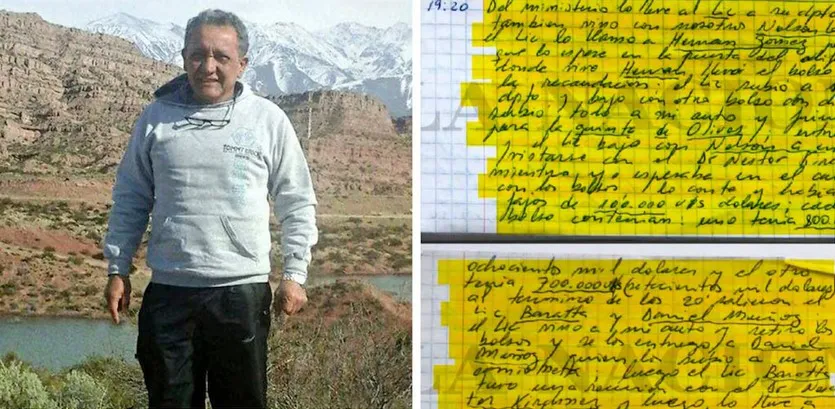 19:20 Del ministerio lo lleve al Lic a su dpto
tambien vino con nosotro Nelson
el Lic lo llamo a Hernan Gomez
que lo espere en la puerta del
donde vive Hernan llevo el bolso
la recaudacion; el Lic subio a
dpto y bajo con otro bolso
subio todo a mi auto y
para la quinta de Olivos y
y el Lic bajo con Nelson a
con el Dr Nestor
mientra yo esperaba en el
con los bolsos lo conte y habia
fajos de 100.000 U$S dolares;
bolso contenian: uno tenia 800
ochociento mil dolares y el otro
tenia 700.000 U$S (setecientos mil dolares
al termino de los 20' salieron el
Lic Baratta y Daniel Muñoz
el Lic vino a mi auto y retiro los
bolsos y se los entrego a Daniel
Muñoz quien los subio a una
camioneta; luego el Lic Baratta
tuvo una reunion con el Dr
tor Kirchner y luego lo lleve a